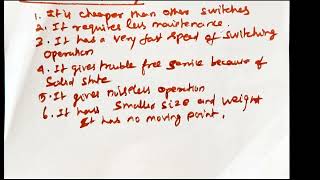 1. It is cheaper than other switches
2. It requires less maintenance.
3. It has a very fast speed of switching
operation
4. It gives trouble free service because of
Solid state
5. It gives noiseless operation
6. It has smaller size and weight
It has no moving point.